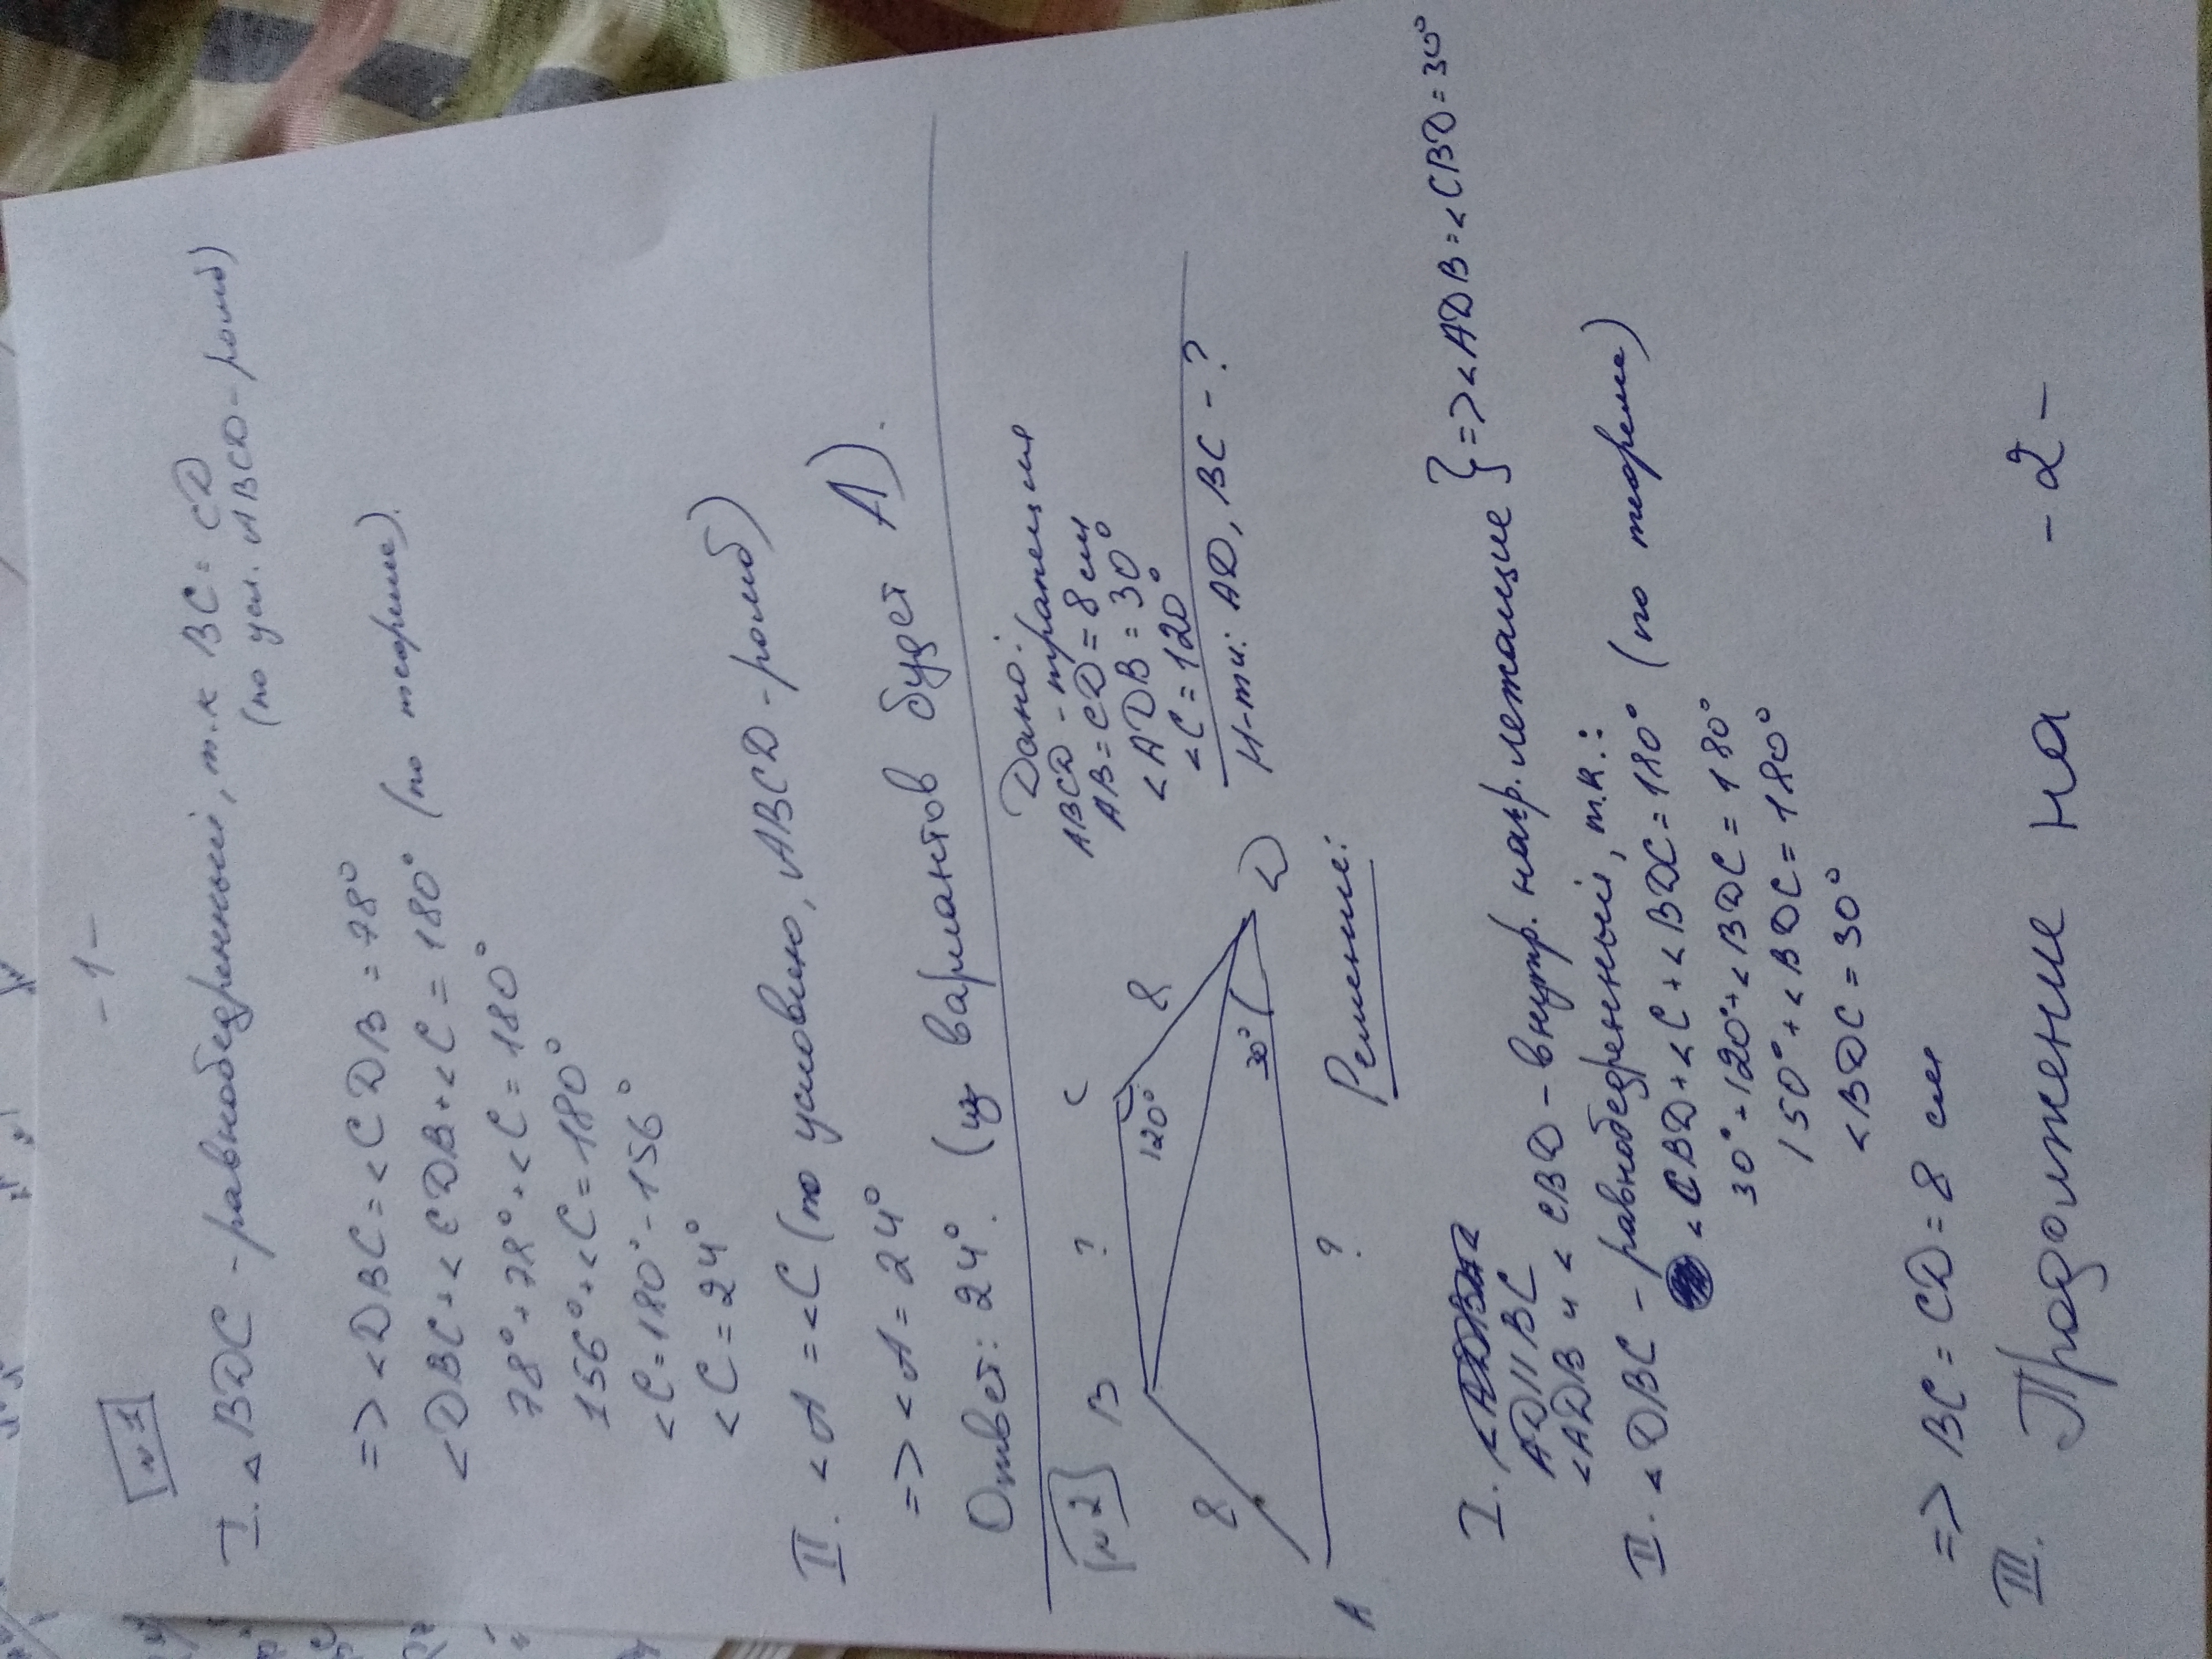 -1-
№1
I. <BDC - равнобедренный, т.к BC = CD
(по усл. ABCD - ромб)
=> <DBC = <CDB = 78°
<DBC + <CDB + <C = 180° (по теореме).
78° + 78° + <C = 180°
156° + <C = 180°
<C = 180° - 156°
<C = 24°
II. <A = <C (по условию, ABCD - ромб)
=> <A = 24°
Ответ: 24°. (из вариантов будет А)).
№2
Дано:
ABCD - трапеция
AB = CD = 8 см
<ADB = 30°
<C = 120°
Н-ти: AD, BC - ?
B
?
C
8
120°
8
30°
D
A
?
Решение:
I.
AD || BC
<ADB и <CBD - внутр. накр. лежащие } => <ADB = <CBD = 30°
II. <DBC - равнобедренный, т.к.:
<CBD + <C + <BDC = 180° (по теореме)
30° + 120° + <BDC = 180°
150° + <BDC = 180°
<BDC = 30°
=> BC = CD = 8 см
III. Продолжение на -2-